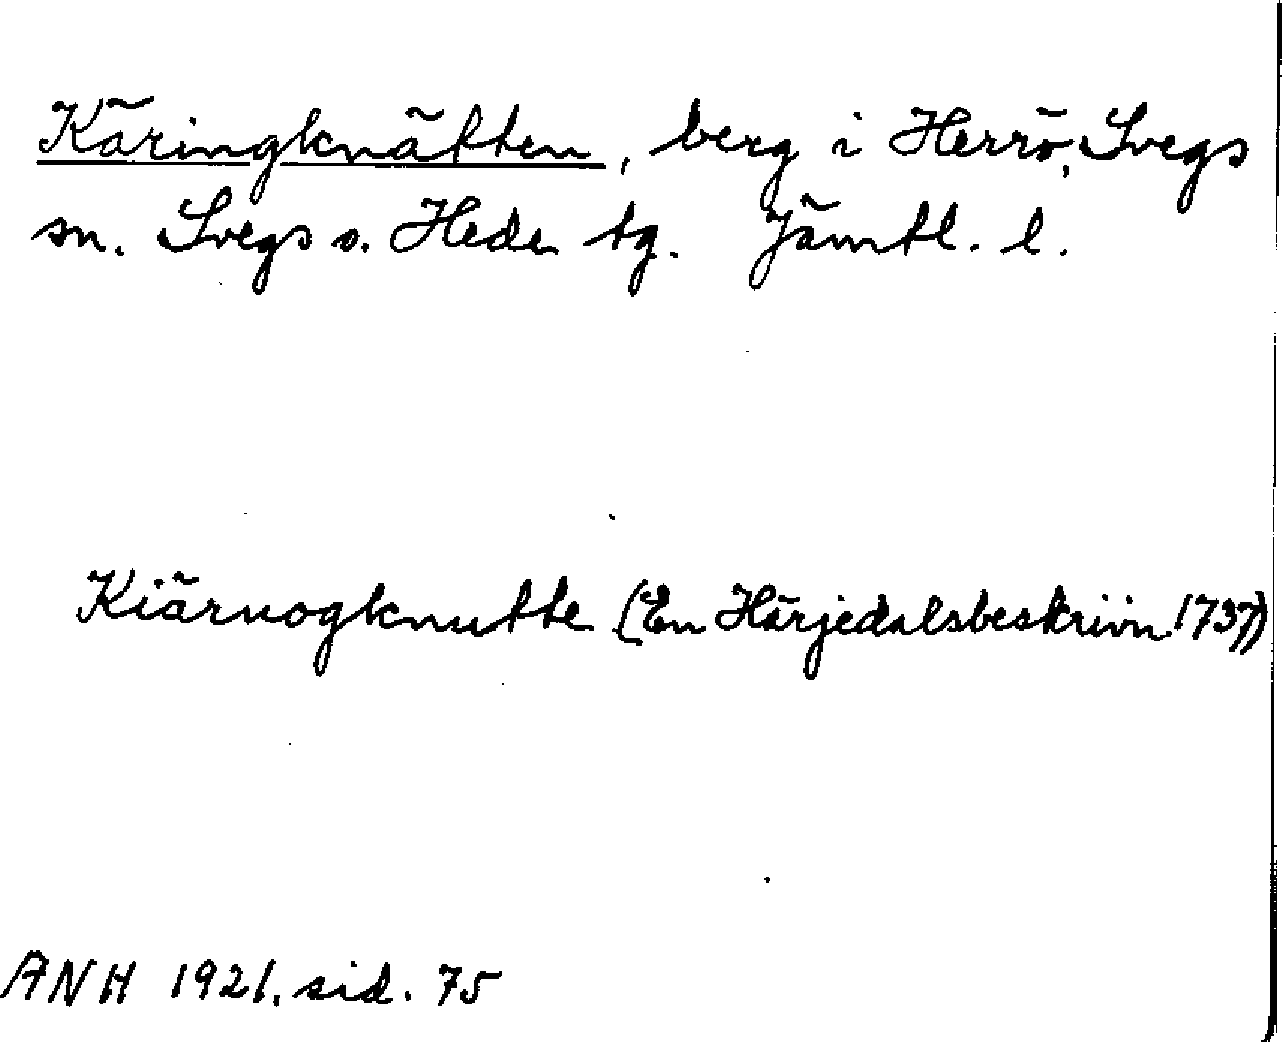 Käringknätten, berg i Herrö, Svegs
sn. Svegs o. Hede tg. Jämtl. l.
Kiärnogknutte (En Härjedalsbeskrivn. 1737)
ANH 1921. sid. 75